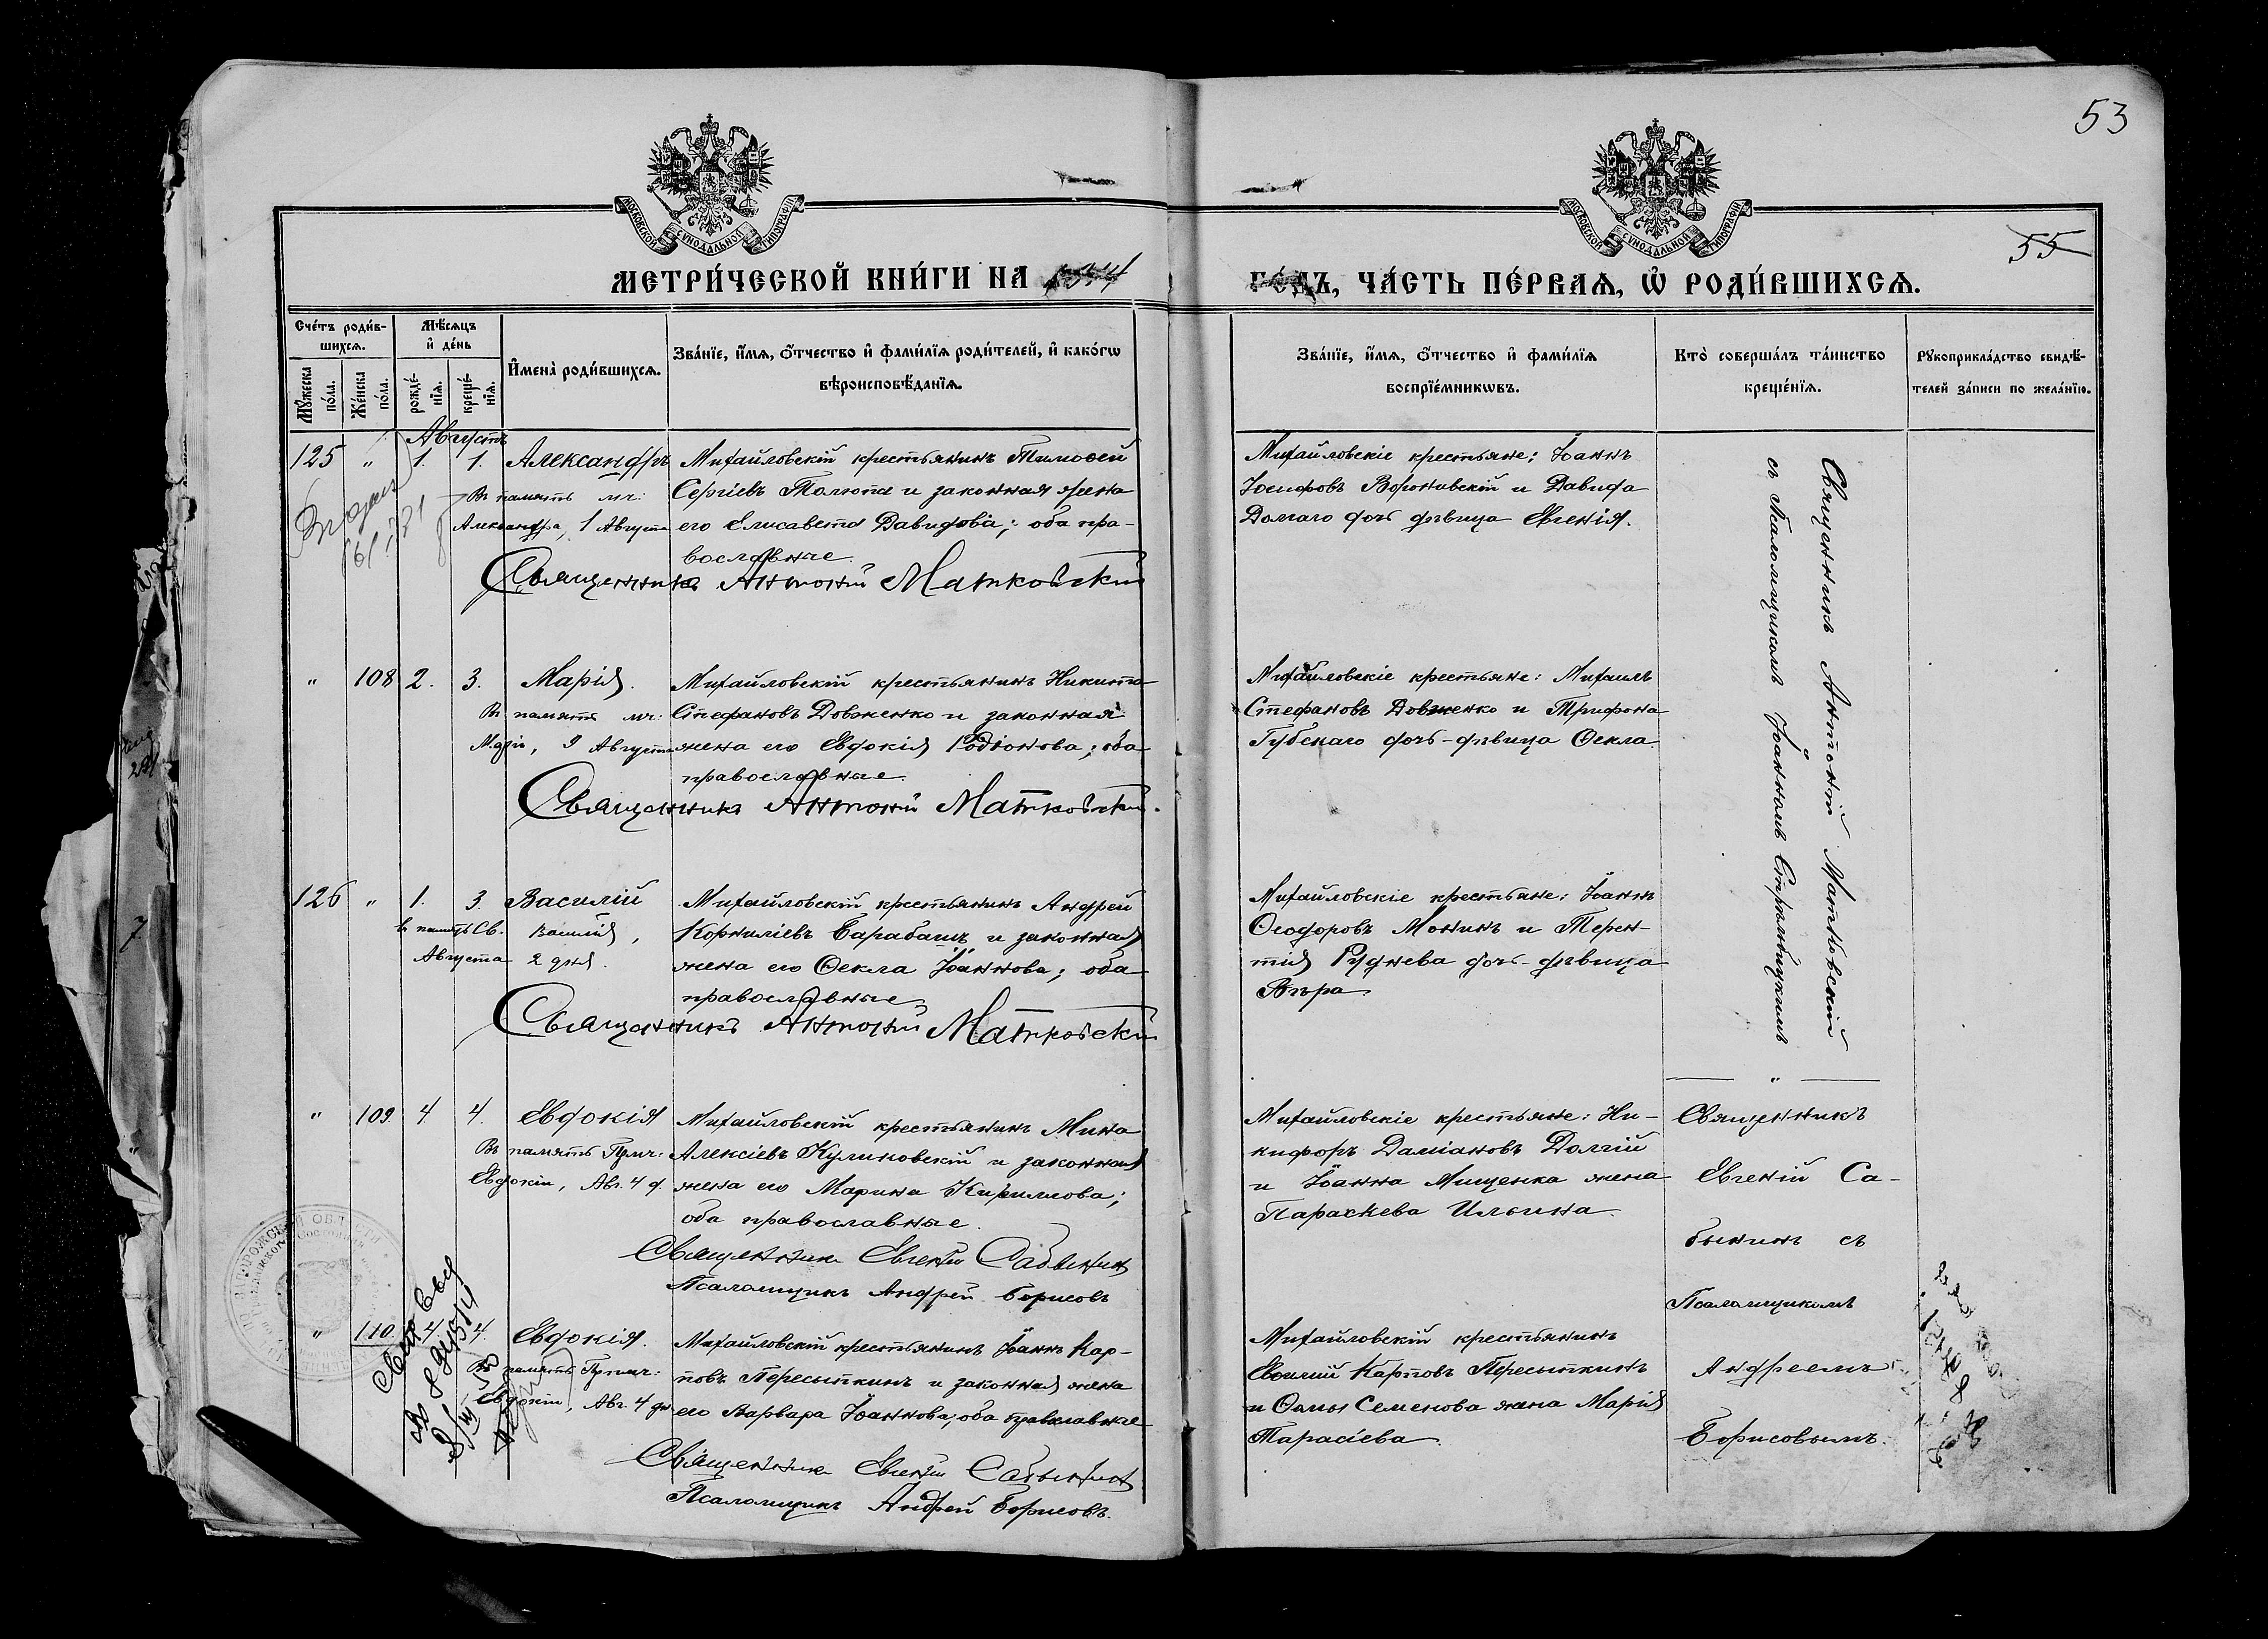 53
55
МОСКОВСКОЙ СѴНОДАЛЬНОЙ ТИПОГРАФІИ
МОСКОВСКОЙ СѴНОДАЛЬНОЙ ТИПОГРАФІИ
МЕТРИ́ЧЕСКОЙ КНИ́ГИ НА
ГО́ДЪ, ЧА́СТЬ ПЕ́РВАѦ, Ѡ҆ РОДИ́ВШИХСѦ.
Сче́тъ роди́в-
шихсѧ.
Мꙋ́жеска по́ла.
Же́нска по́ла.
Мѣ́сѧцъ
и҆ де́нь
рожде́-
нїѧ.
креще́-
нїѧ.
И҆мена̀ роди́вшихсѧ.
Зва́нїе, и҆́мѧ, ѻ҆́тчество и҆ фами́лїѧ роди́телей, и҆ како́гѡ
вѣроисповѣ́данїѧ.
Зва́нїе, и҆́мѧ, ѻ҆́тчество и҆ фами́лїѧ
воспрїе́мникѡвъ.
Кто̀ соверша́лъ та́инство
креще́нїѧ.
Рꙋкоприкла́дство свидѣ́-
телей за́писи по жела́нїю.
Августъ
125 " 1. 1. Александръ
Въ память мч:
Александра, 1 Августа
Михайловскій крестьянинъ Тимоѳей
Сергіевъ Талюта и законная жена
его Елисавета Давидова; оба пра-
вославные.
Священникъ Антоній Матковскій
Михайловскіе крестьяне: Іоаннъ
Іосифовъ Воронивскій и Давида
Долгаго дочь дѣвица Евгенія.
Священникъ Антоній Матковскій
съ Псаломщикомъ Іоанномъ Стрѣльбицкимъ
" 108 2. 3. Марія.
Въ память мч:
Маріи, 9 Августа
Михайловскій крестьянинъ Никита
Стефановъ Довженко и законная
жена его Евдокія Родіонова; оба
православные.
Священникъ Антоній Матковскій.
Михайловскіе крестьяне: Михаилъ
Стефановъ Довженко и Трифона
Губскаго дочь-дѣвица Ѳекла.
126 " 1. 3. Василій
въ память Св. Василія,
Августа 2 дня.
Михайловскій крестьянинъ Андрей
Корниліевъ Барабашъ и законная
жена его Ѳекла Іоаннова; оба
православные
Священникъ Антоній Матковскій
Михайловскіе крестьяне: Іоаннъ
Ѳеодоровъ Монинъ и Терен-
тія Руднева дочь-дѣвица
Вѣра.
" 109. 4 4. Евдокія
Въ память Прмч:
Евдокіи, Авг. 4 д.
Михайловскій крестьянинъ Мина
Алексіевъ Куликовскій и законная
жена его Марина Кириллова;
оба православные.
Священникъ Евгеній Сабынинъ
Псаломщикъ Андрей Борисовъ
Михайловскіе крестьяне: Ни-
кифоръ Даміановъ Долгій
и Іоанна Мищенка жена
Параскева Ильина.
Священникъ
Евгеній Са-
бынинъ съ
Псаломщикомъ
Андреемъ
Борисовымъ.
" 110. 4. 4. Евдокія.
Въ память Прпмч:
Евдокіи, Авг. 4 дн
Михайловскій крестьянинъ Іоаннъ Кар-
повъ Пересыпкинъ и законная жена
его Варвара Іоаннова; оба православные
Священникъ Евгеній Сабынинъ
Псаломщикъ Андрей Борисовъ.
Михайловскій крестьянинъ
Евѳимій Карповъ Пересыпкинъ
и Ѳомы Семенова жена Марія
Тарасіева.